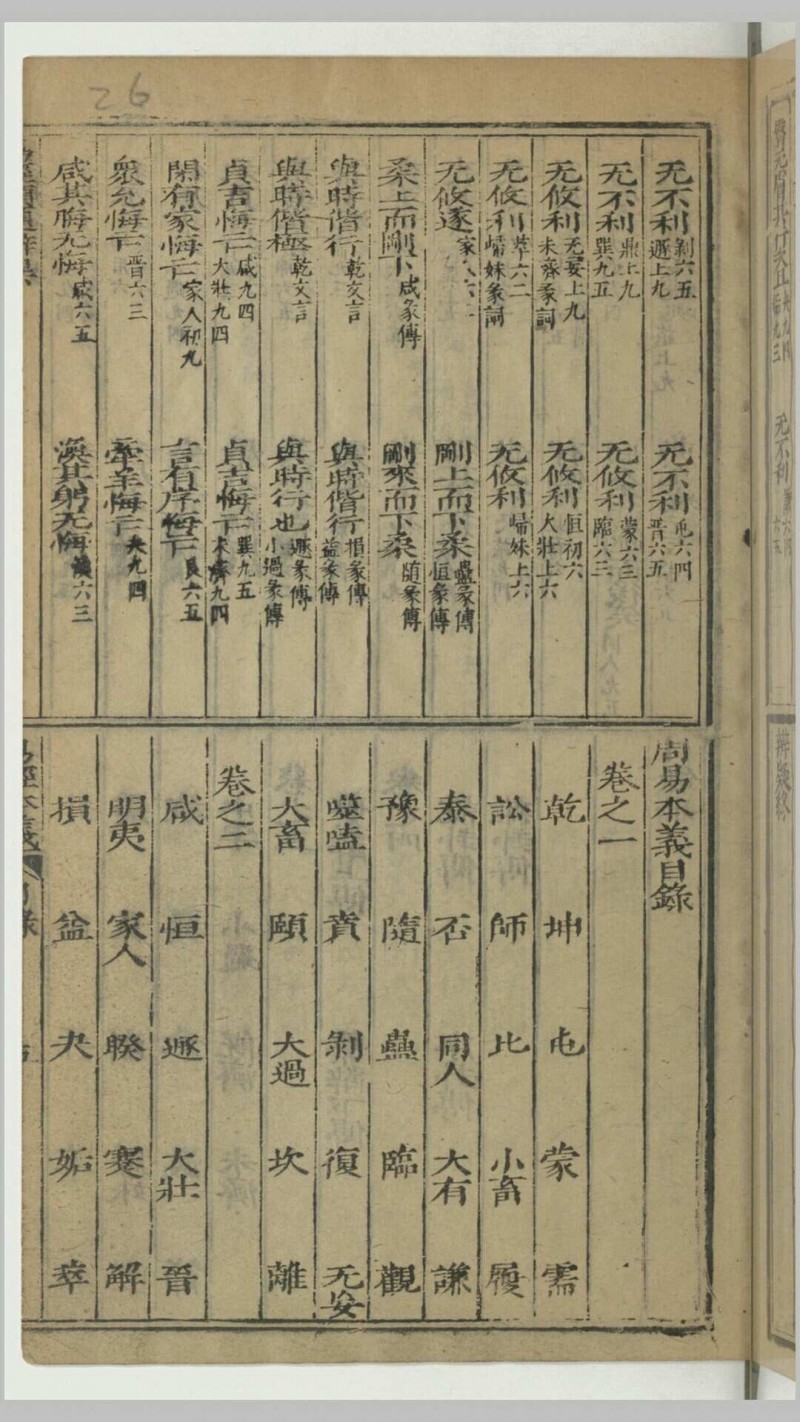 26
无不利剝六五遯上九　无不利屯六四晉六五
无不利鼎上九巽九五　无攸利蒙六三臨六三
无攸利无妄上九未濟彖詞　无攸利恒初六大壯上六
无攸利萃六二歸妹彖詞　无攸利歸妹上六
无攸遂家人六二　剛上而下柔蠱彖傳恒彖傳
柔上而剛下咸彖傳　剛來而下柔隨彖傳
與時偕行乾文言　與時偕行損彖傳益彖傳
與時偕極乾文言　與時行也遯彖傳小過彖傳
貞吉悔亡咸九四大壯九四　貞吉悔亡巽九五未濟九四
閑有家悔亡家人初九　言有序悔亡艮六五
衆允悔亡晉六三　牽羊悔亡夬九四
咸其脢无悔咸六五　渙其躬无悔渙六三
周易本義目錄
卷之一
乾　坤　屯　蒙　需
訟　師　比　小畜　履
泰　否　同人　大有　謙
豫　隨　蠱　臨　觀
噬嗑　賁　剝　復　无妄
大畜　頤　大過　坎　離
卷之二
咸　恒　遯　大壯　晉
明夷　家人　睽　蹇　解
損　益　夬　姤　萃
易經本義　目錄